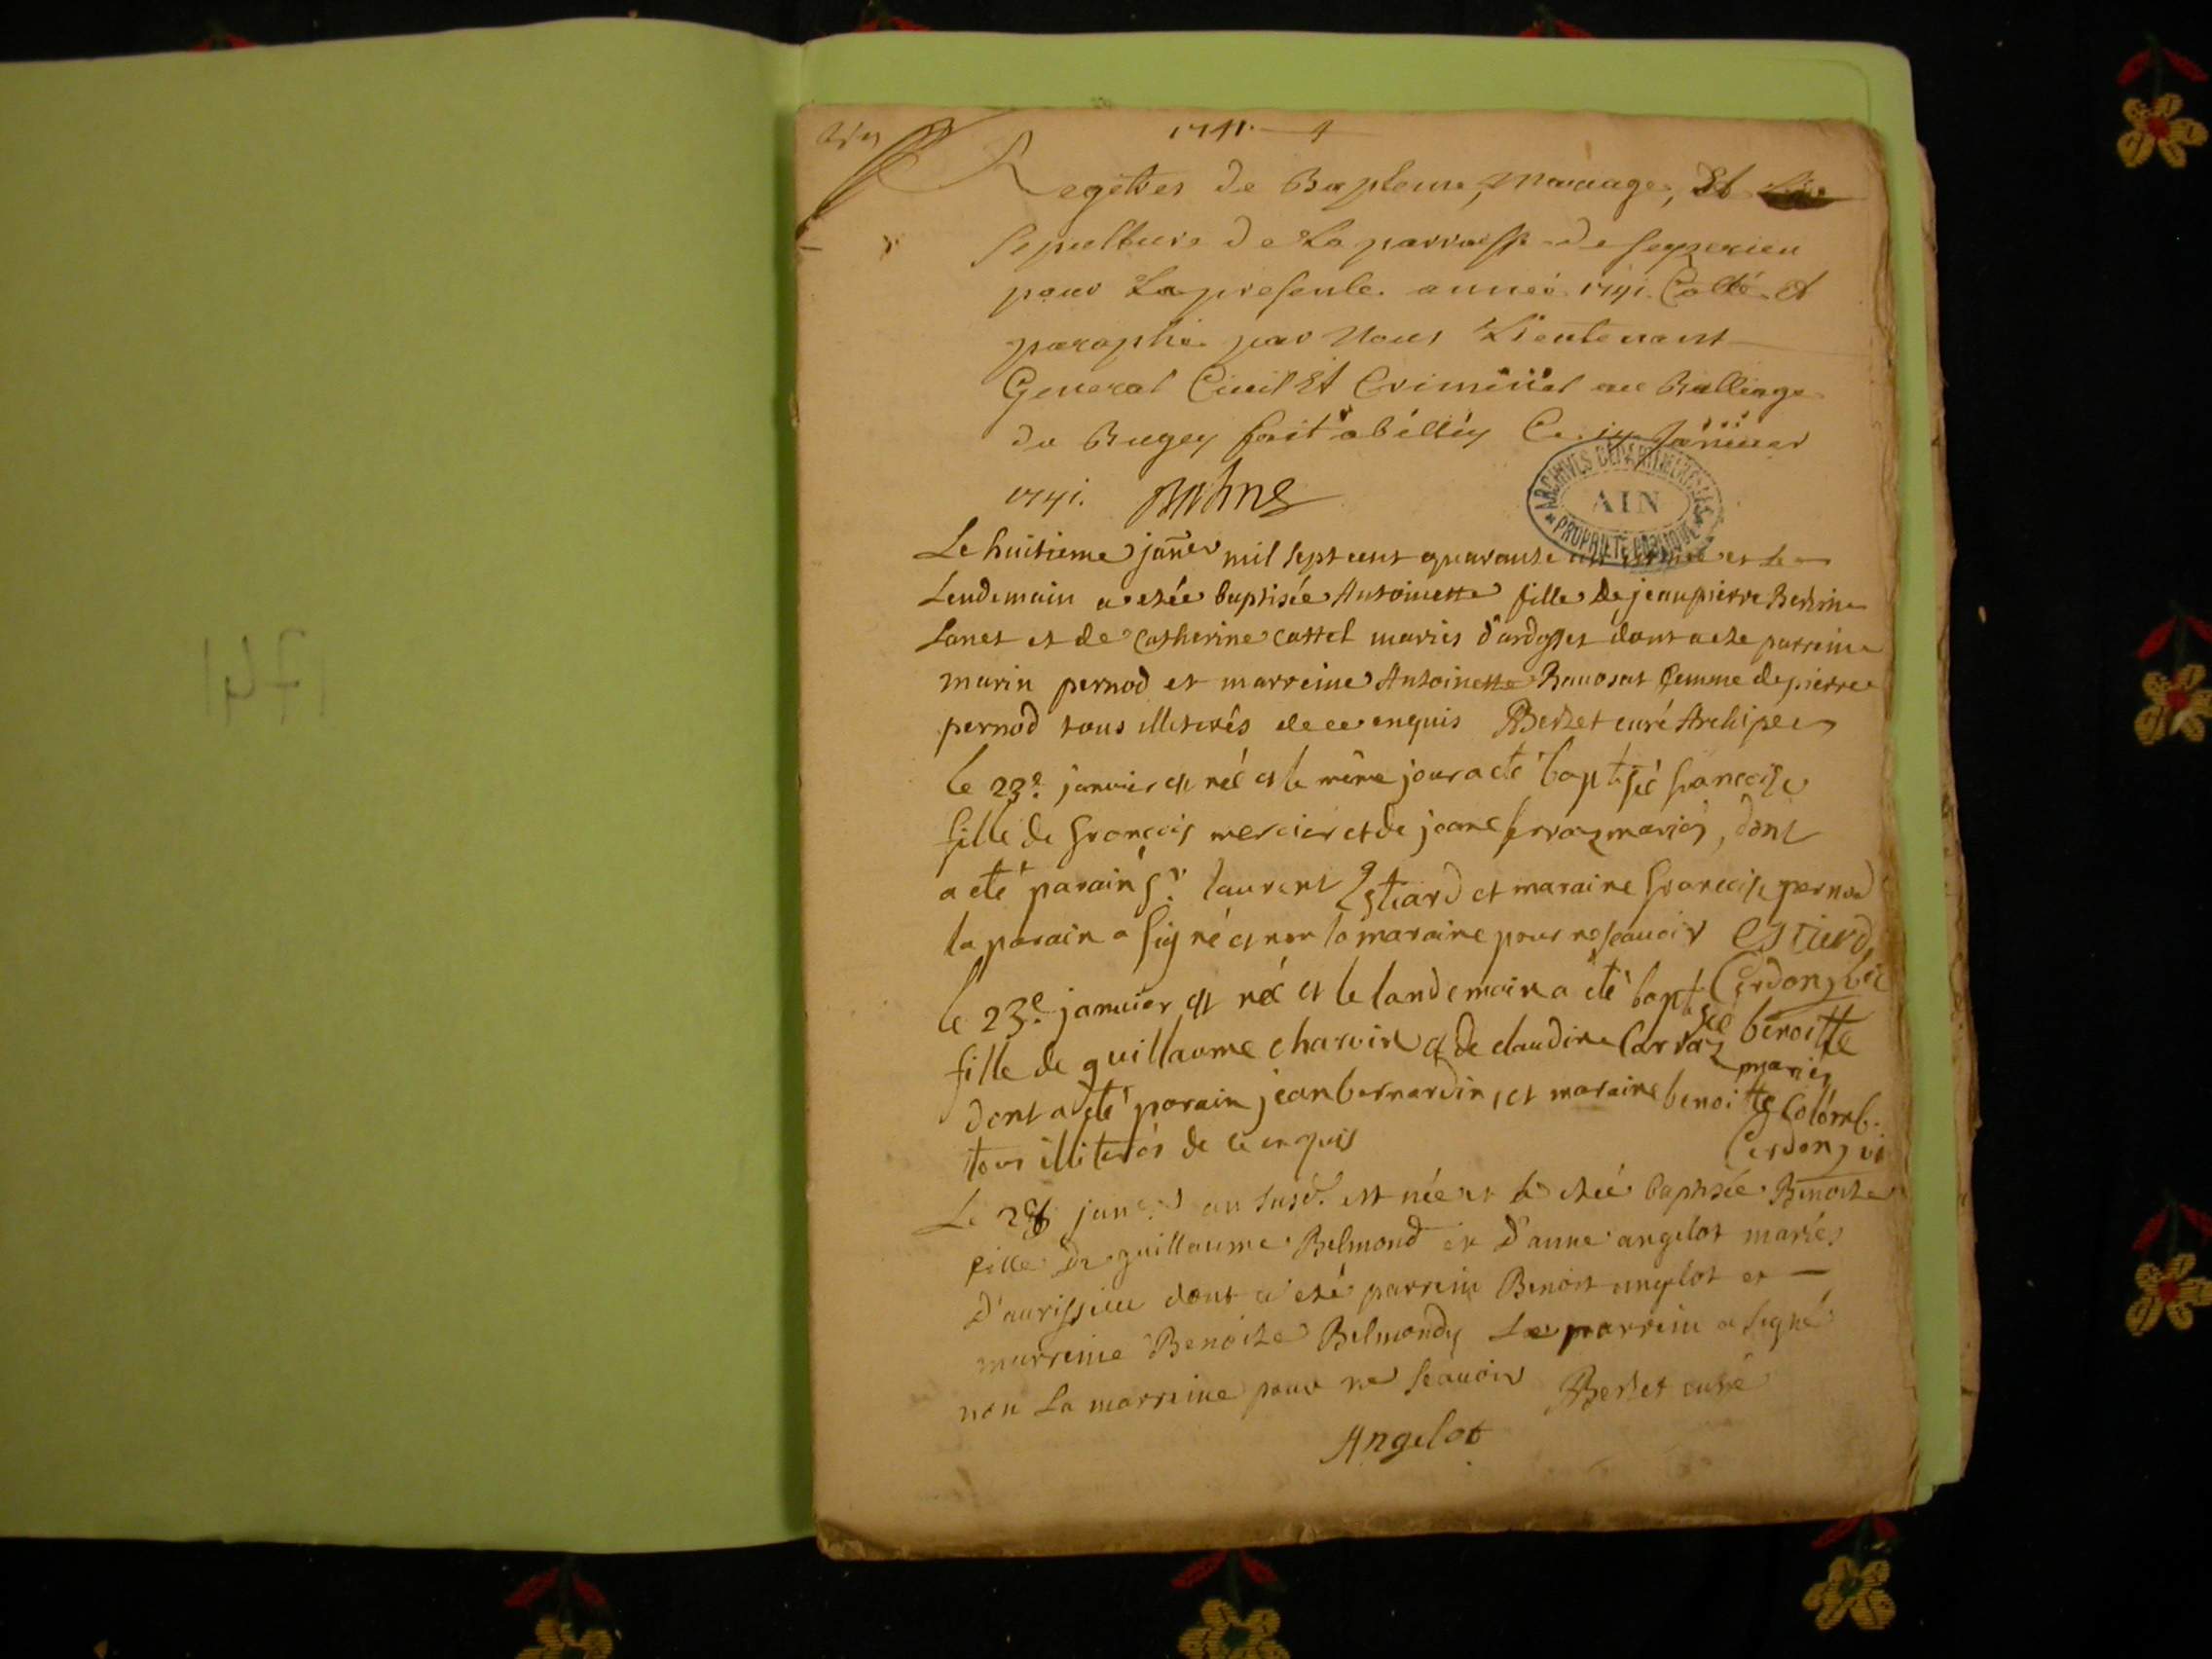 1741
1741. 1
Regettres de Bapteme, Mariage, Et
sepulture de La parroisse de Seyzerieu
pour La presente année 1741. Cotté et
paraphé par Nous Lieutenant
General Civil Et Criminel au Balliage
du Bugey fait a bélléy Ce Janvier
1741.
ARCHIVES DEPARTEMENTALES
AIN
PROPRIETE PUBLIQUE
Le huitieme janer mil sept cent quarante et le
Lendemain a etée baptisée Antoinette fille de jeanpierre
et de Catherine mariés d'ardosset dont a ete parrein
marin pernod et marreine Antoinette femme de pierre
pernod tous illiterés de ce enquis Berlet curé Archipre
le 23e. janvier est neé et le même jour a eté baptiseé francoise
fille de francois mercier et de jeane ferraz mariés, dont
a eté parain Sr. laurent Estiard et maraine francoise pernod
le parain a signé et non la maraine pour ne scauoir Estiard
Cerdon, vic
le 23e. januier est neé et le landemain a eté baptiseé benoitte
fille de guillaume charvin et de claudine Carraz mariés
dont a eté parain jean bernardin, et maraine benoitte Colomb.
tous illiterés de ce enquis Cerdon, vi
Le janer an susd. est née et a etée baptisée Benoite
fille de guillaume Belmond et d'anne angelot mariés
d'aurissieu dont a eté parrein Benoit angelot et
marreine Benoite Belmondy Le parrein a signé
non La marreine pour ne scauoir Berlet curé
Angelot